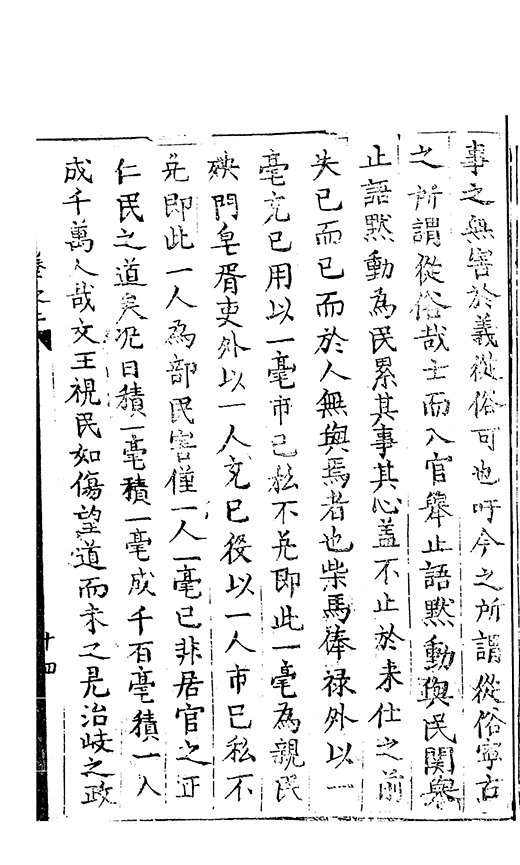 事之無害於義從俗可也吁今之所謂從俗寧古
之所謂從俗哉士而入官舉止語黙動與民関舉
止語黙動為民累其事其心盖不止於未仕之前
失已而已而於人無與焉者也柴馬俸祿外以一
毫充已用以一毫市已私不免即此一毫為親民
殃門皂胥吏外以一人充已役以一人市已私不
免即此一人為部民害僅一人一毫已非居官之正
仁民之道矣况日積一毫積一毫成千百毫積一人
成千萬人哉文王視民如傷望道而未之見治岐之政
卷之
十四